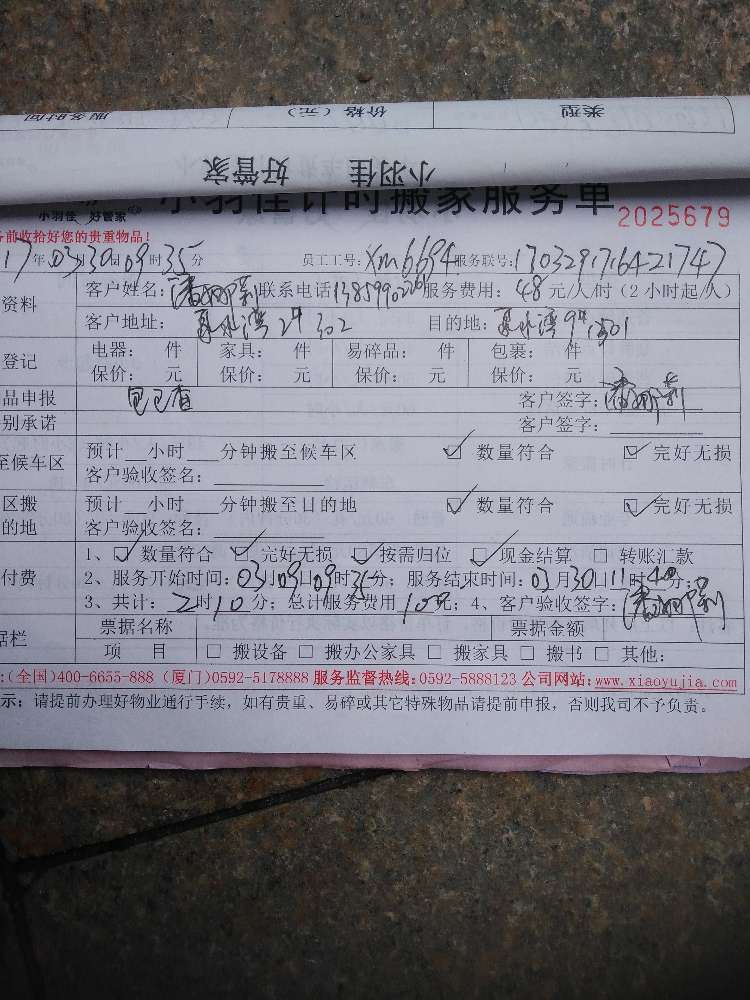 类型 价格（元） 服务时间
小羽佳 好管家
小羽佳 好管家 小羽佳计时搬家服务单 2025679
前收拾好您的贵重物品！
17年03月30日09时35分 员工工号：xm6694 服务联号：170329171642174７
资料 客户姓名： 联系电话 服务费用：48元/人/时（2小时起/人）
客户地址： 水湾2# 302 目的地： 水湾9#
登记 电器： 件 家具： 件 易碎品： 件 包裹： 件
保价： 元 保价： 元 保价： 元 保价： 元
品申报 客户签字：
别承诺 客户签字：
至候车区 预计__小时__分钟搬至候车区 ☑ 数量符合 ☑ 完好无损
客户验收签名：
区搬 预计__小时__分钟搬至目的地 ☑ 数量符合 ☑ 完好无损
的地 客户验收签名：
1、☑ 数量符合 ☑ 完好无损 ☑ 按需归位 ☑ 现金结算 □ 转账汇款
付费 2、服务开始时间：03月09日09时35分；服务结束时间：03月30日11时40分；
3、共计：2时10分；总计服务费用 元；4、客户验收签字：
据栏 票据名称 票据金额
项 目 □ 搬设备 □ 搬办公家具 □ 搬家具 □ 搬书 □ 其他：
:(全国)400-6655-888（厦门)0592-5178888 服务监督热线:0592-5888123 公司网站:www.xiaoyujia.com
示：请提前办理好物业通行手续，如有贵重、易碎或其它特殊物品请提前申报，否则我司不予负责。